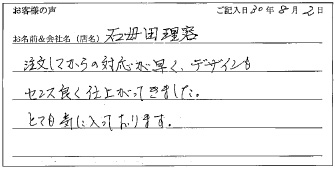 お客様の声 ご記入日 30年 8月 2日
お名前&会社名(店名) 石母田理容
注文してからの対応が早く、デザインも
センス良く仕上がってきました。
とても気に入っております。